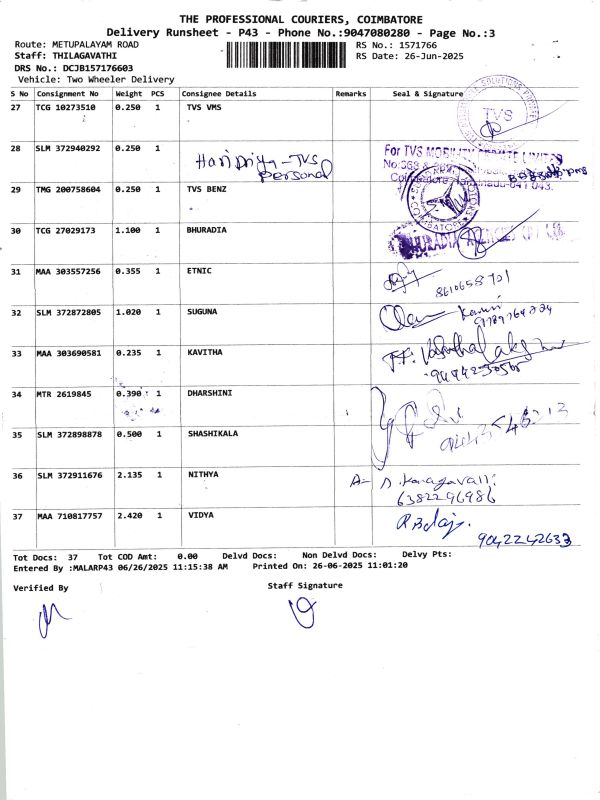 THE PROFESSIONAL COURIERS, COIMBATORE
Delivery Runsheet - P43 - Phone No.:9047080280 - Page No.:3
Route: METUPALAYAM ROAD
Staff: THILAGAVATHI
DRS No.: DCJB157176603
Vehicle: Two Wheeler Delivery
RS No.: 1571766
RS Date: 26-Jun-2025
S No Consignment No Weight PCS Consignee Details Remarks Seal & Signature
27 TCG 10273510 0.250 1 TVS VMS
TVS
28 SLM 372940292 0.250 1
Hari Driya - TVS
Personal
For TVS MOBILITY PRIVATE LIMITED
29 TMG 200758604 0.250 1 TVS BENZ
COIMBATORE
30 TCG 27029173 1.100 1 BHURADIA
31 MAA 303557256 0.355 1 ETNIC
8610658701
32 SLM 372872805 1.020 1 SUGUNA
33 MAA 303690581 0.235 1 KAVITHA
34 MTR 2619845 0.390 1 DHARSHINI
35 SLM 372898878 0.500 1 SHASHIKALA
36 SLM 372911676 2.135 1 NITHYA
6382296986
37 MAA 710817757 2.420 1 VIDYA
9042242633
Tot Docs: 37 Tot COD Amt: 0.00 Delvd Docs: Non Delvd Docs: Delvy Pts:
Entered By :MALARP43 06/26/2025 11:15:38 AM Printed On: 26-06-2025 11:01:20
Verified By
Staff Signature